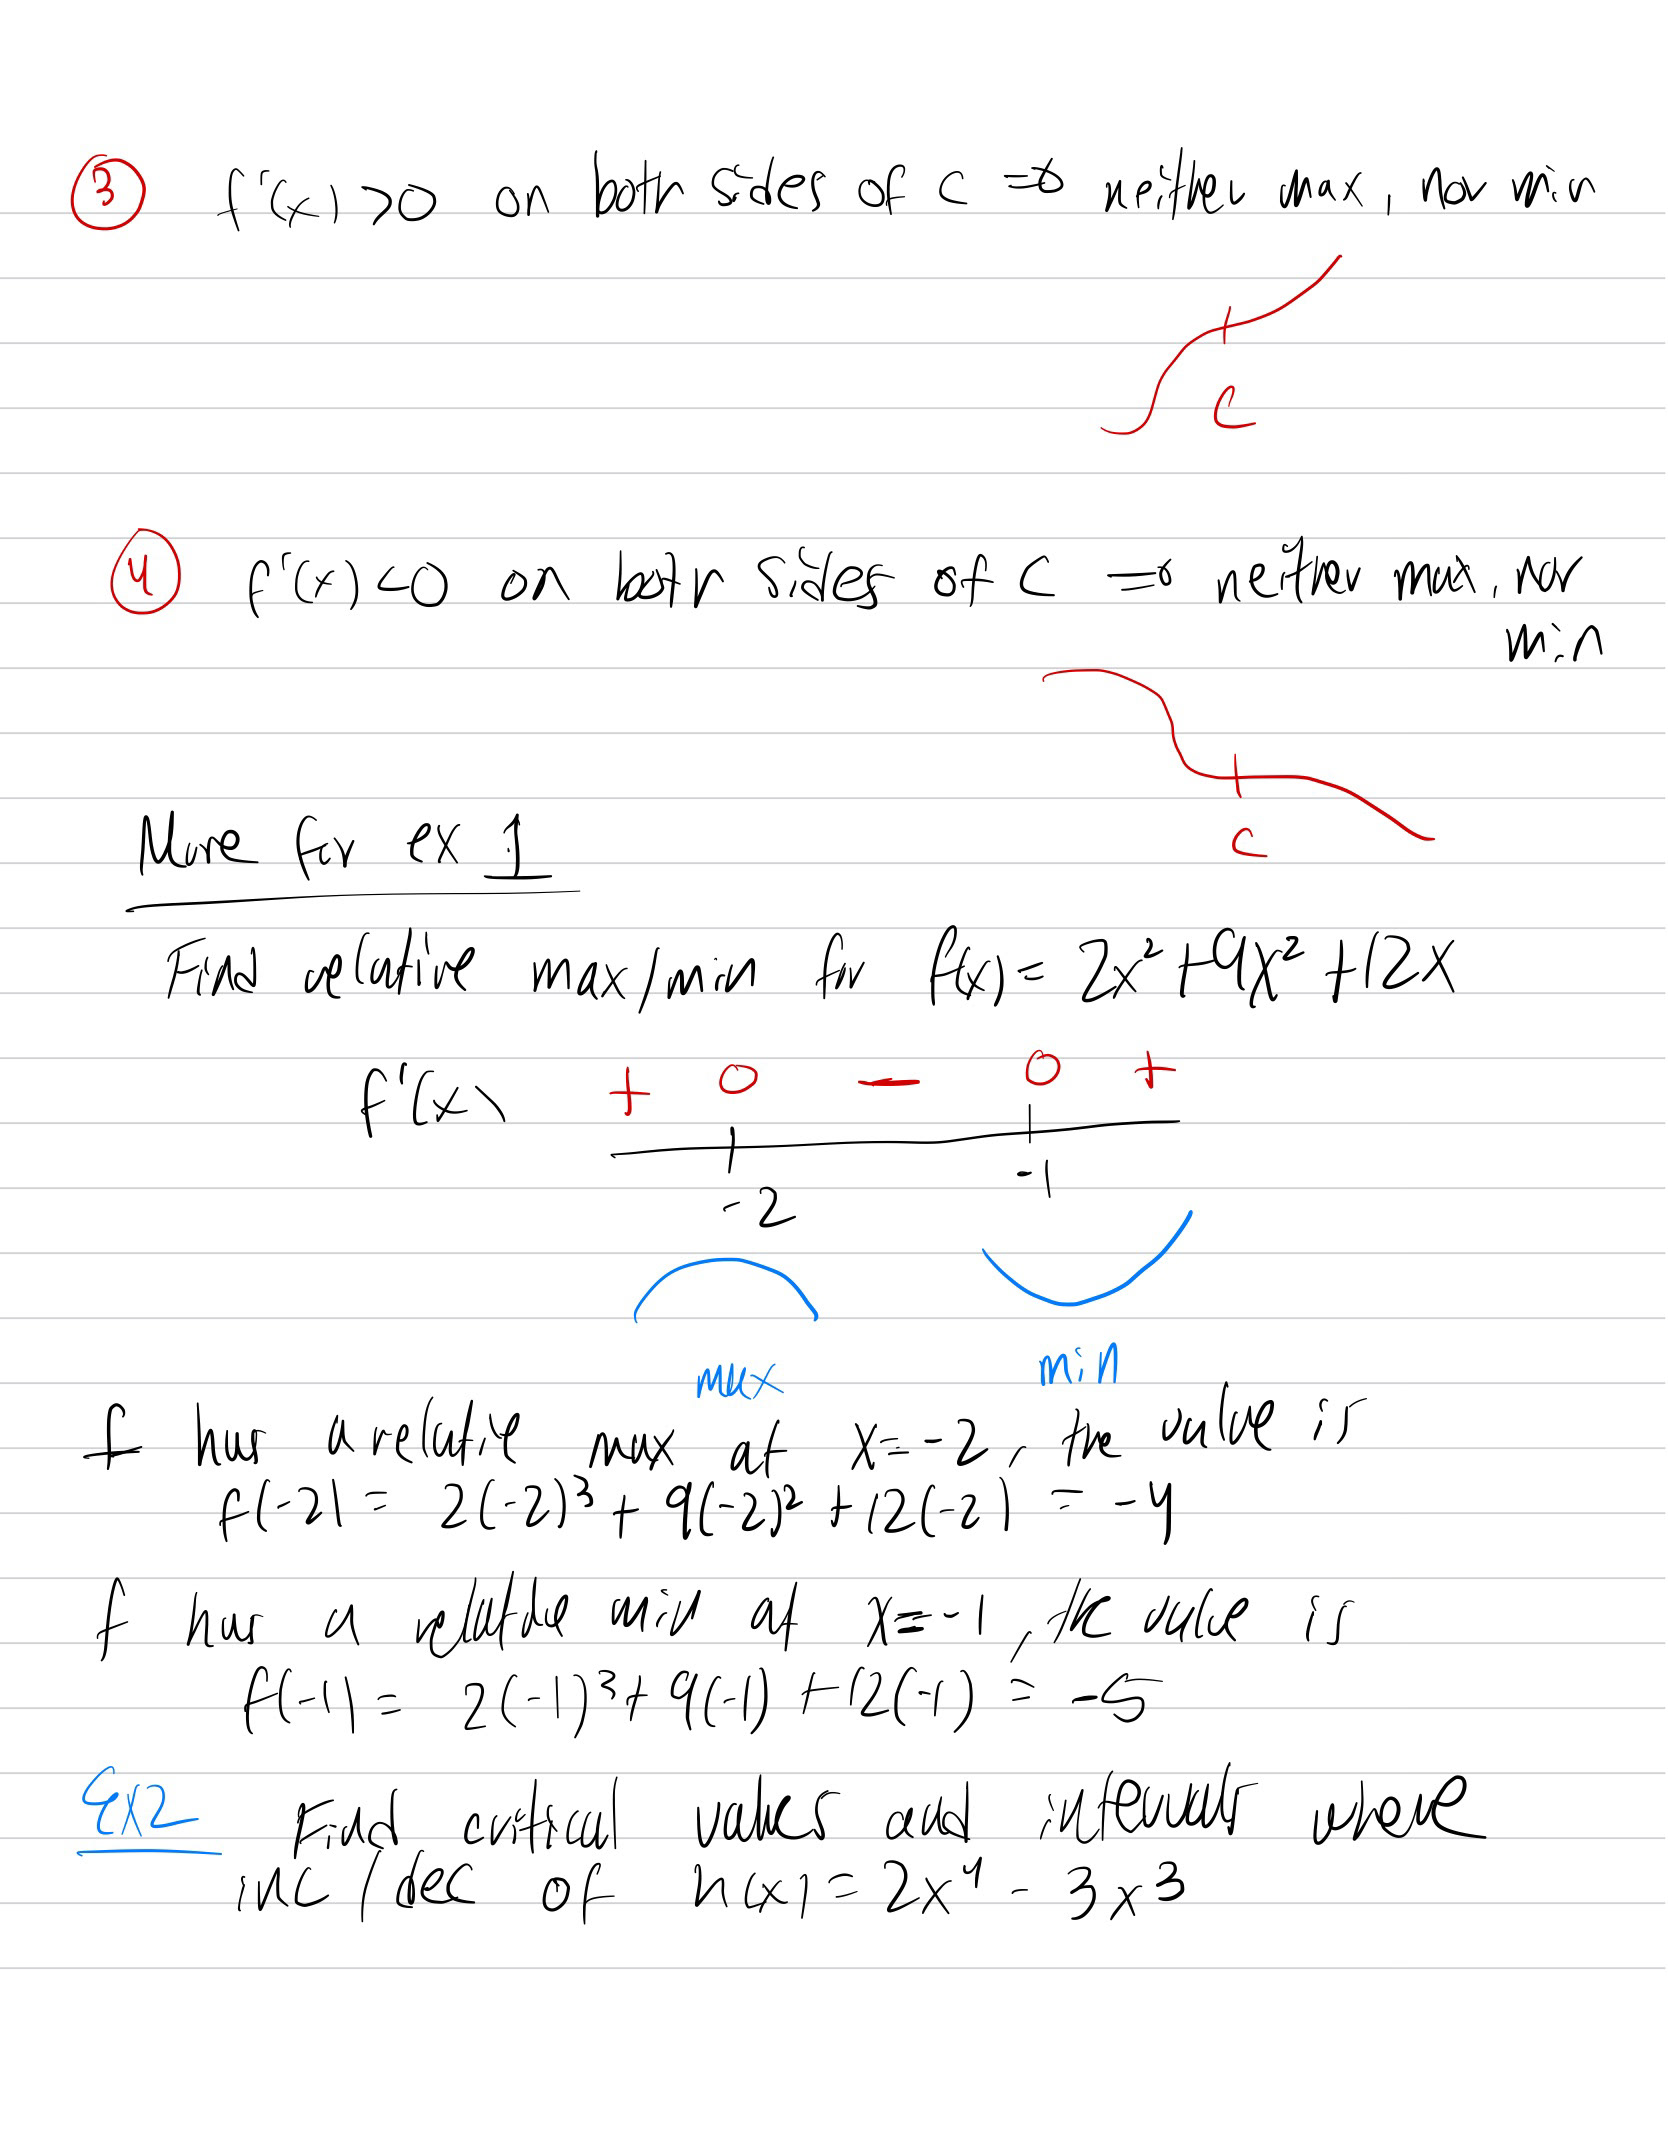 ③ f'(x) >0 on both sides of c => neither max, nor min
C
④ f'(x) <0 on both sides of C => neither max, nor
min
C
More for ex 1
Find relative max/min for f(x) = 2x² +9x² +12x
f'(x) + 0 - 0 +
-2 -1
max min
f has a relative max at x=-2, the value is
f(-2) = 2(-2)³ + 9(-2)² +12(-2) = -4
f has a relative min at x=-1, the value is
f(-1) = 2(-1)³+ 9(-1) +12(-1) = -5
Ex2 Find critical values and intervals where
inc/dec of h(x) = 2x⁴ - 3x³